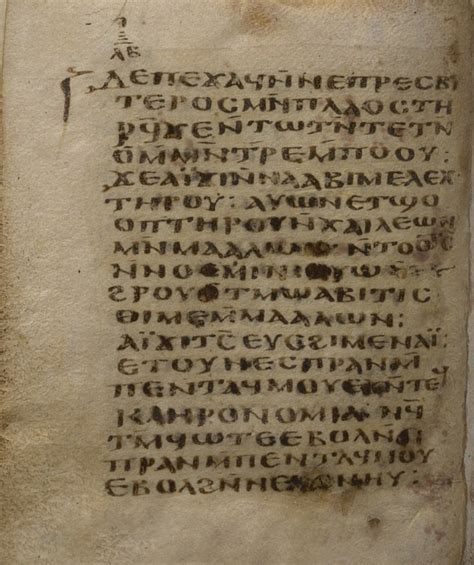 ⲗⲃ
ⲇⲉⲡⲉϫⲁϥⲛ̄ⲛⲉⲡⲣⲉⲥⲃ
ⲧⲉⲣⲟⲥⲙⲛ̄ⲡⲗⲁⲟⲥⲧⲏ
ⲣϥ̄ϫⲉⲛ̄ⲧⲱⲧⲛ̄ⲧⲉⲧⲛ
ⲟⲙ̄ⲙⲛ̄ⲧⲣⲉⲙ̄ⲡⲟⲟⲩ:
ϫⲉⲁⲓ̈ϫⲓⲛ̄ⲛⲁⲁⲃⲓⲙⲉⲗⲉⲭ
ⲧⲏⲣⲟⲩ: ⲁⲩⲱⲛⲉⲧϣⲟ
ⲟⲡⲧⲏⲣⲟⲩⲛ̄ⲭⲁⲓⲗⲉⲱⲛ
ⲙⲛ̄ⲙⲁⲁⲗⲱⲛⲛ̄ⲧⲟⲟⲧⲥ̄
ⲛ̄ⲛⲟⲉⲙⲓⲛ
ϩⲣⲟⲩⲑⲧⲙⲱⲁⲃⲓⲧⲓⲥ
ⲑⲓⲙⲉⲙ̄ⲙⲁⲁⲗⲱⲛ:
ⲁⲓ̈ϫⲓⲧⲥ̄ⲉⲩⲥϩⲓⲙⲉⲛⲁⲓ̈
ⲉⲧⲟⲩⲛⲉⲥⲡⲣⲁⲛⲙ̄
ⲡⲉⲛⲧⲁϥⲙⲟⲩⲉϩⲛ̄ⲧⲉϥ
ⲕⲗⲏⲣⲟⲛⲟⲙⲓⲁⲛϥ̄
ⲧⲙϥⲱⲧⲉⲉⲃⲟⲗⲛ̄ϭⲓ
ⲡⲣⲁⲛⲙ̄ⲡⲉⲛⲧⲁϥⲙⲟⲩ
ⲉⲃⲟⲗϩⲛ̄ⲛⲉϥⲥⲛⲏⲩ: